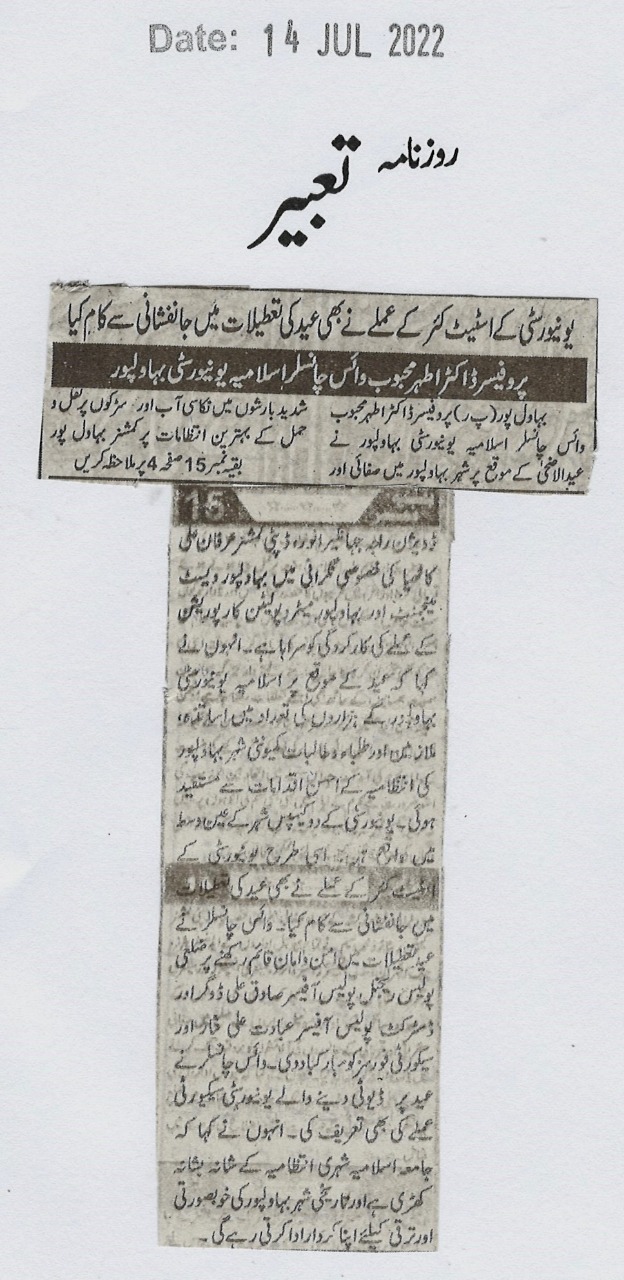 Date: 14 JUL 2022
روزنامہ تعبیر
یونیورسٹی کے اسٹیٹ کئر کے عملے نے بھی عید کی تعطیلات میں جانفشانی سے کام کیا
پروفیسر ڈاکٹر اطہر محبوب وائس چانسلر اسلامیہ یونیورسٹی بہاولپور
بہاول پور (پ ر) پروفیسر ڈاکٹر اطہر محبوب
وائس چانسلر اسلامیہ یونیورسٹی بہاولپور نے
عیدالاضحیٰ کے موقع پر شہر بہاولپور میں صفائی اور
شدید بارشوں میں نکاسی آب اور سڑکوں پر نقل و
حمل کے بہترین انتظامات پر کمشنر بہاول پور
بقیہ نمبر 15 صفحہ 4 پر ملاحظہ کریں
15
ڈویژن راجہ جہانگیر انور، ڈپٹی کمشنر عرفان علی
کاٹھیا کی خصوصی نگرانی میں بہاولپور ویسٹ
مینجمنٹ اور بہاولپور میٹروپولیٹن کارپوریشن
کے عملے کی کارکردگی کو سراہا ہے۔ انہوں نے
کہا کہ عید کے موقع پر اسلامیہ یونیورسٹی
بہاولپور کے ہزاروں کی تعداد میں اساتذہ،
ملازمین اور طلباء و طالبات کمیونٹی شہر بہاولپور
کی انتظامیہ کے احسن اقدامات سے مستفید
ہوئی۔ یونیورسٹی کے دو کیمپس شہر کے عین وسط
میں واقع ہیں۔ اسی طرح یونیورسٹی کے
اسٹیٹ کئر کے عملے نے بھی عید کی تعطیلات
میں جانفشانی سے کام کیا۔ وائس چانسلر نے
عید تعطیلات میں امن و امان قائم رکھنے پر ضلعی
پولیس ریجنل پولیس آفیسر صادق علی ڈوگر اور
ڈسٹرکٹ پولیس آفیسر عبادت علی نثار اور
سیکورٹی فورسز کو مبارکباد دی۔ وائس چانسلر نے
عید پر ڈیوٹی دینے والے یونیورسٹی سیکیورٹی
عملے کی بھی تعریف کی۔ انہوں نے کہا کہ
جامعہ اسلامیہ شہری انتظامیہ کے شانہ بشانہ
کھڑی ہے اور تاریخی شہر بہاولپور کی خوبصورتی
اور ترقی کیلئے اپنا کردار ادا کرتی رہے گی۔